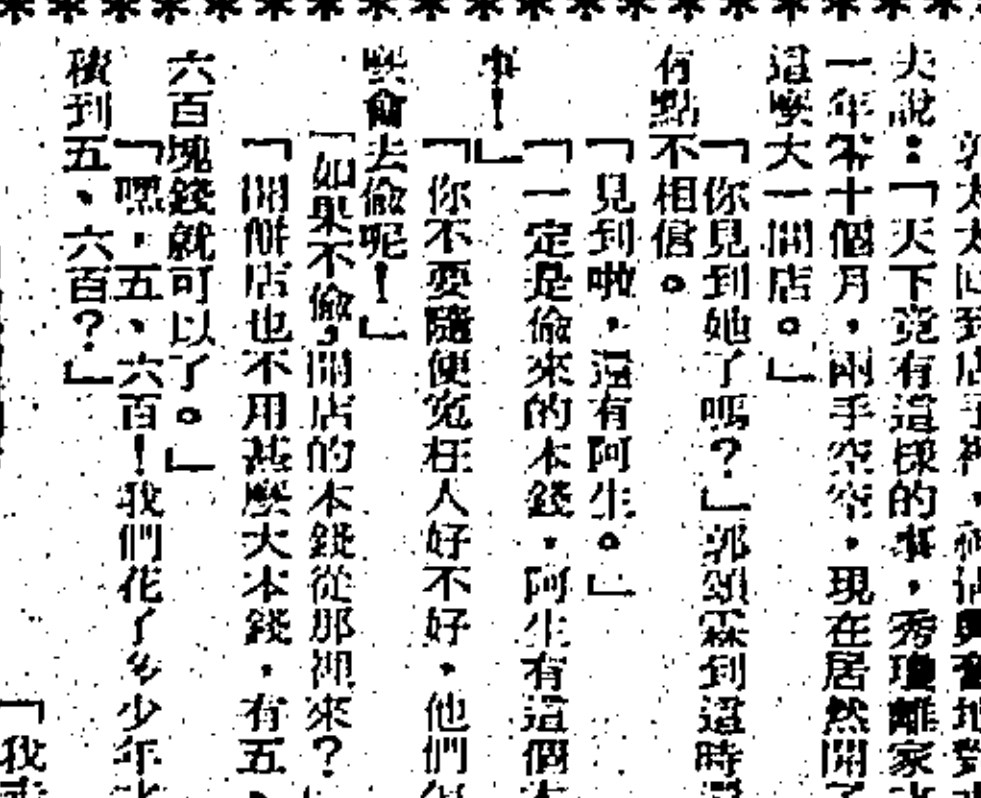 郭太太回到店子裡，和
夫說：「天下竟有這樣的事，秀瓊離家
一年零十個月，兩手空空，現在居然開了
這麼大一間店。」
「你見到她了嗎？」郭頌霖到這時
有點不相信。
「見到啦，還有阿生。」
「一定是偷來的本錢，阿生有這個本
事！」
「你不要隨便冤枉人好不好，他們
麼會去偷呢！」
「如果不偷，開店的本錢從那裡來？
「開餅店也不用甚麼大本錢，有五、
六百塊錢就可以了。」
「嘿，五、六百！我們花了多少年才
積到五、六百？」
「我